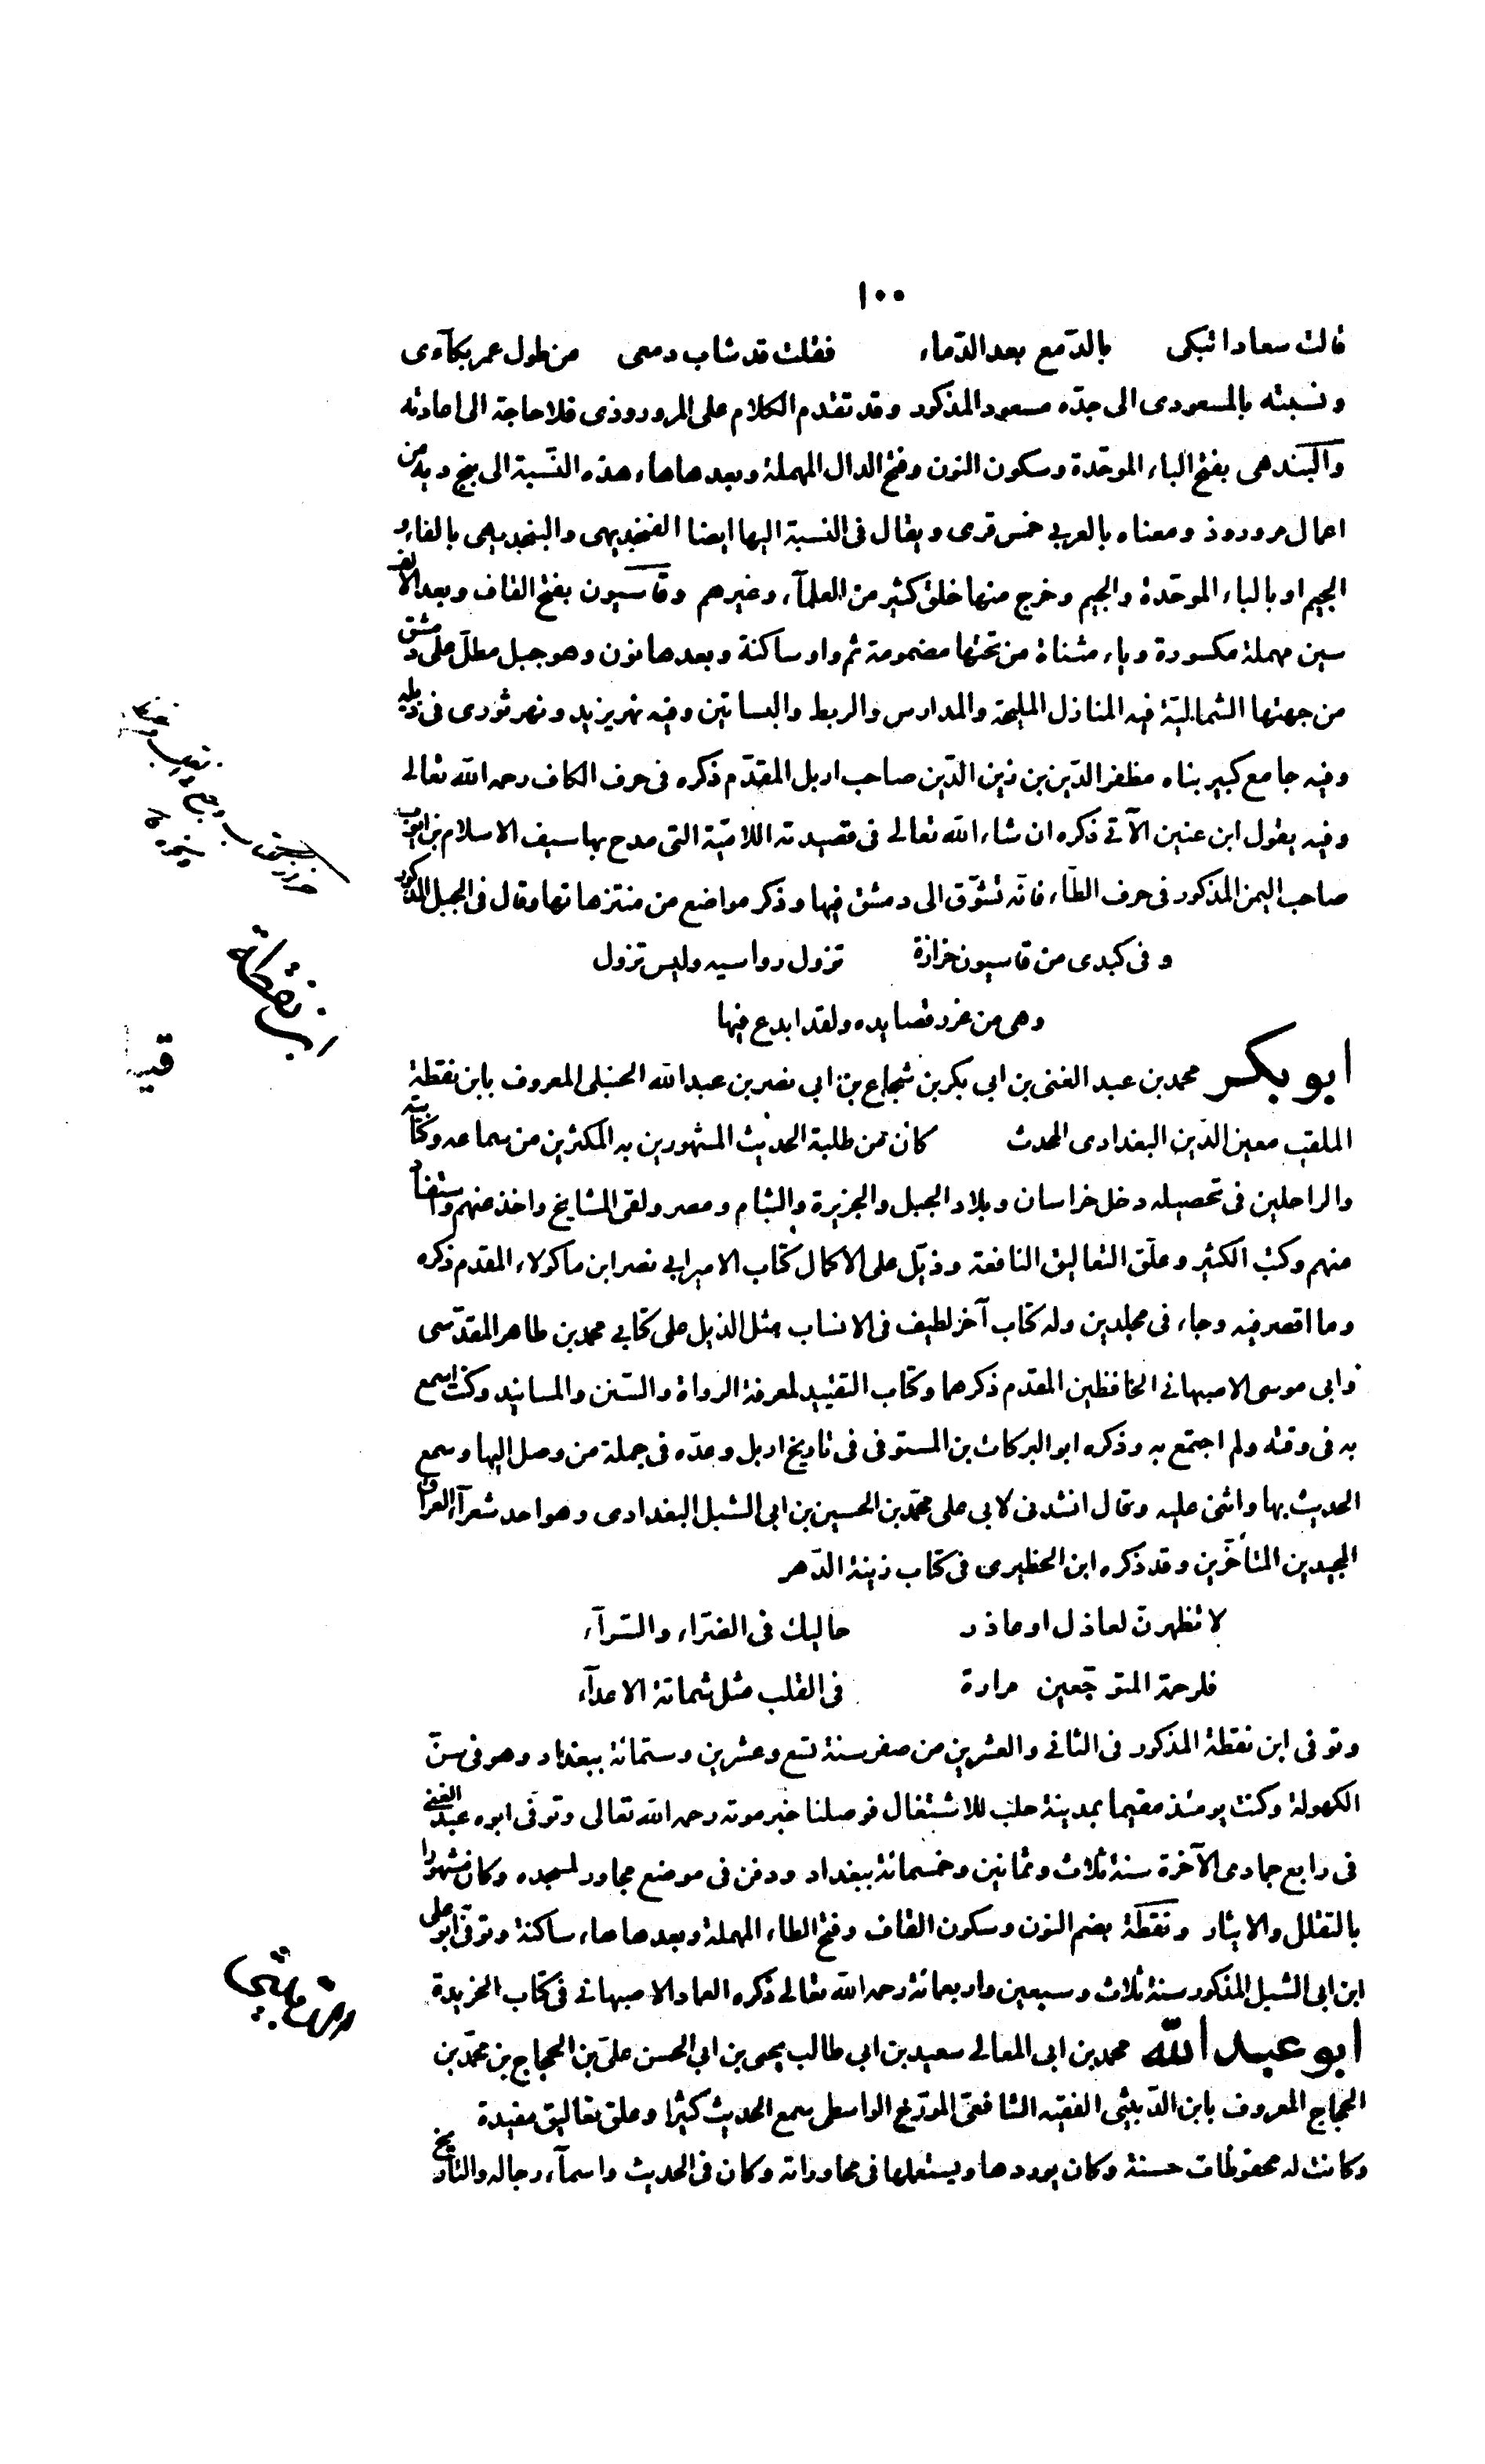 ١٠٠
قالت سعاد اتبكى بالدّمع بعد الدّماء فقلت قد شاب دمعى من طول عمر بكآءى
ونسبته بالمسعودى الى جدّه مسعود المذكور وقد تقدم الكلام على المروروذى فلا حاجة الى اعادته
والبندهى بفتح الباء الموحّدة وسكون النون وفتح الدال المهملة وبعدها هاء هذه النّسبة الى پنج ديه من
اعمال مروروذ ومعناه بالعربي خمس قرى ويقال فى النسبة اليها ايضا الفنجديهى والبنجديهى بالفاء و
الجيم او بالباء الموحّدة والجيم وخرج منها خلق كثير من العلمآء وغيرهم وقاسيون بفتح القاف وبعد الالف
سين مهملة مكسورة وياء مثناة من تحتها مضمومة ثم واو ساكنة وبعدها نون وهو جبل مطلّ على دمشق
من جهتها الشماليّة فيه المنازل المليحة والمدارس والربط والبساتين وفيه نهر يزيد ونهر ثورى فى ذيله
وفيه جامع كبير بناه مظفر الدّين بن زين الدّين صاحب اربل المقدّم ذكره فى حرف الكاف رحمه الله تعالى
وفيه يقول ابن عنين الآتي ذكره ان شاء الله تعالى فى قصيدته اللاميّة التى مدح بها سيف الاسلام بن ايوب
صاحب اليمن المذكور فى حرف الطّاء فانّه تشوّق الى دمشق فيها وذكر مواضع من منتزهاتها وقال فى الجبل المذكور
وفى كبدى من قاسيون حزازة تزول رواسيه وليس تزول
وهى من غرر قصايده ولقد ابدع فيها
ابن نقطة
ابو بكر محمد بن عبد الغنى بن ابى بكر بن شجاع بن ابى نصر بن عبدالله الحنبلى المعروف بابن نقطة
الملقب معين الدّين البغدادى المحدث كان من طلبة الحديث المشهورين به المكثرين من سماعه وكتابته
والراحلين فى تحصيله دخل خراسان وبلاد الجبل والجزيرة والشام ومصر ولقى المشايخ واخذ عنهم واستفاد
منهم وكتب الكثير وعلّق التعاليق النافعة وذيّل على الاكمال كتاب الامير ابي نصر ابن ماكولاء المقدم ذكره
وما اقصر فيه وجاء فى مجلدين وله كتاب آخر لطيف فى الانساب مثل الذيل على كتابي محمد بن طاهر المقدّسى
وابى موسى الاصبهاني الحافظين المقدم ذكرهما وكتاب التقييد لمعرفة الرواة والسّنن والمسانيد وكنت اسمع
به فى وقته ولم اجتمع به وذكره ابو البركات بن المستوفى فى تاريخ اربل وعدّه فى جملة من وصل اليها وسمع
الحديث بها واثنى عليه وقال انشدنى لابى على محمّد بن الحسين بن ابى الشبل البغدادى وهو احد شعرآء العراق
المجيدين المتأخّرين وقد ذكره ابن الحظيرى فى كتاب زينة الدّهر
لا تظهرنّ لعاذل او عاذر حاليك فى الضرّاء والسّرآء
فلرحمة المتوجّعين مرارة فى القلب مثل شماتة الاعدآء
وتوفى ابن نقطة المذكور فى الثانى والعشرين من صفر سنة تسع وعشرين وستمائة ببغداد وهو فى سنّ
الكهولة وكنت يومئذ مقيما بمدينة حلب للاشتغال فوصلنا خبر موته رحمه الله تعالى وتوفى ابوه عبد الغنى
فى رابع جمادى الآخرة سنة ثلاث وثمانين وخمسمائة ببغداد ودفن فى موضع مجاور لمسجده وكان مشهورا
بالتقلل والايثار ونقطة بضم النون وسكون القاف وفتح الطاء المهملة وبعدها هاء ساكنة وتوفّى ابو على
ابن ابى الشبل المذكور سنة ثلاث وسبعين واربعمائة رحمه الله تعالى ذكره العماد الاصبهاني فى كتاب الخريدة
ابو عبد الله محمد بن ابى المعالي سعيد بن ابى طالب يحيى بن ابى الحسن علىّ بن الحجاج بن محمّد بن
الحجاج المعروف بابن الدّبيثى الفقيه الشافعىّ المورّخ الواسطى سمع الحديث كثيرا وعلق تعاليق مفيدة
وكانت له محفوظات حسنة وكان يوردها ويستعملها فى محاوراته وكان فى الحديث واسمآء رجاله والتاريخ